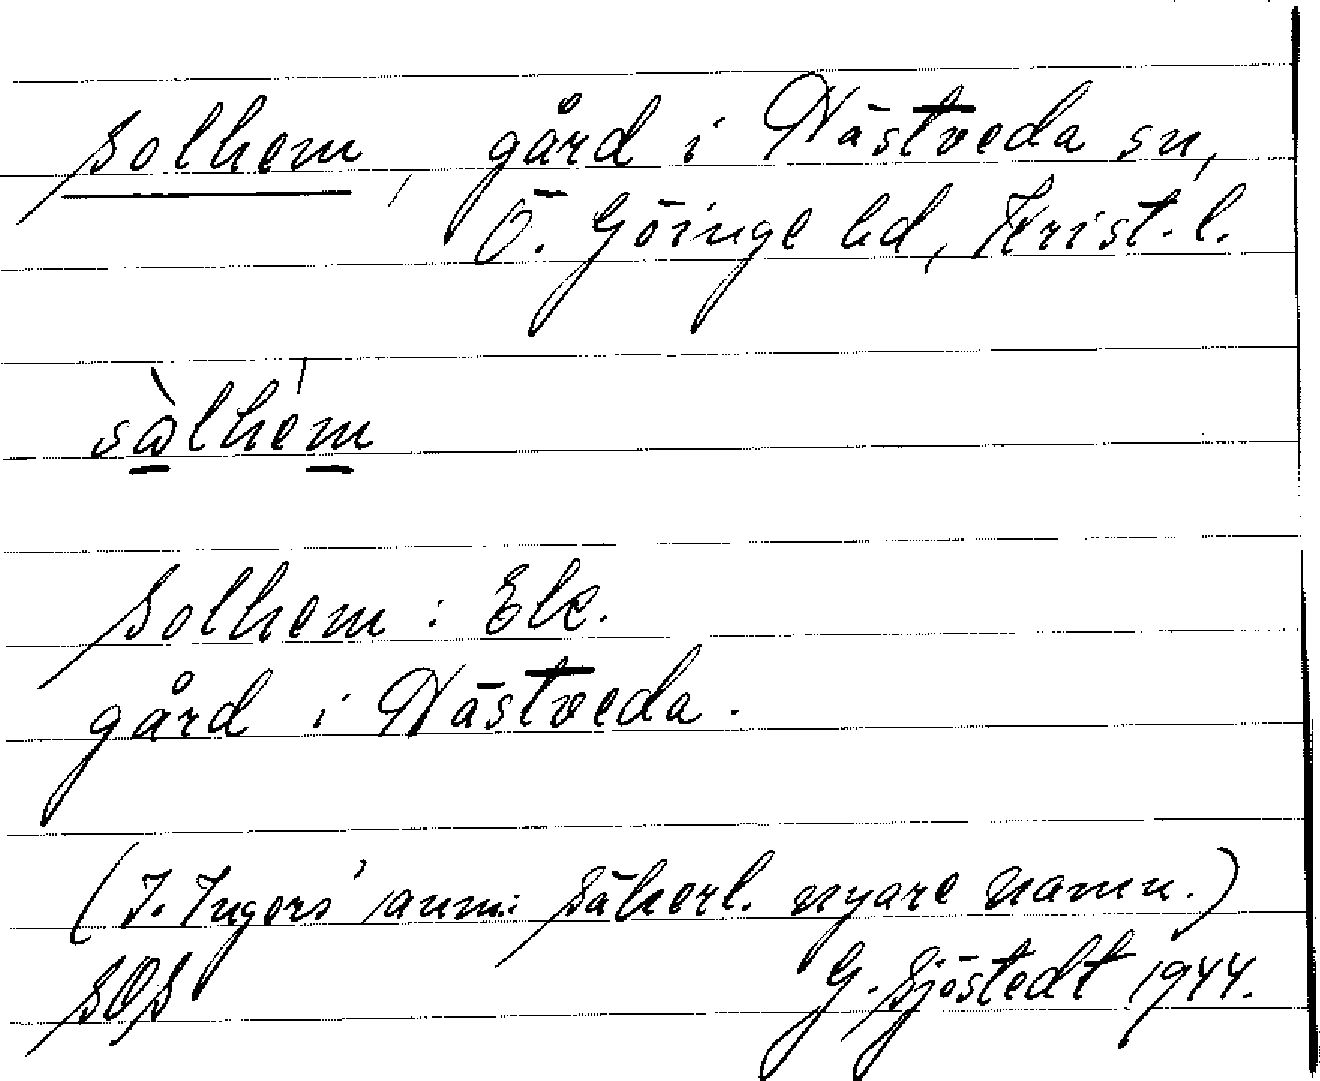 Solhem, gård i Nästveda sn,
Ö. Göinge hd, Krist. l.
sòlhém
Solhem : Ek.
gård i Nästveda.
(I. Ingers' anm.: Säkerl. nyare namn.)
SOS G. Sjöstedt 1944.